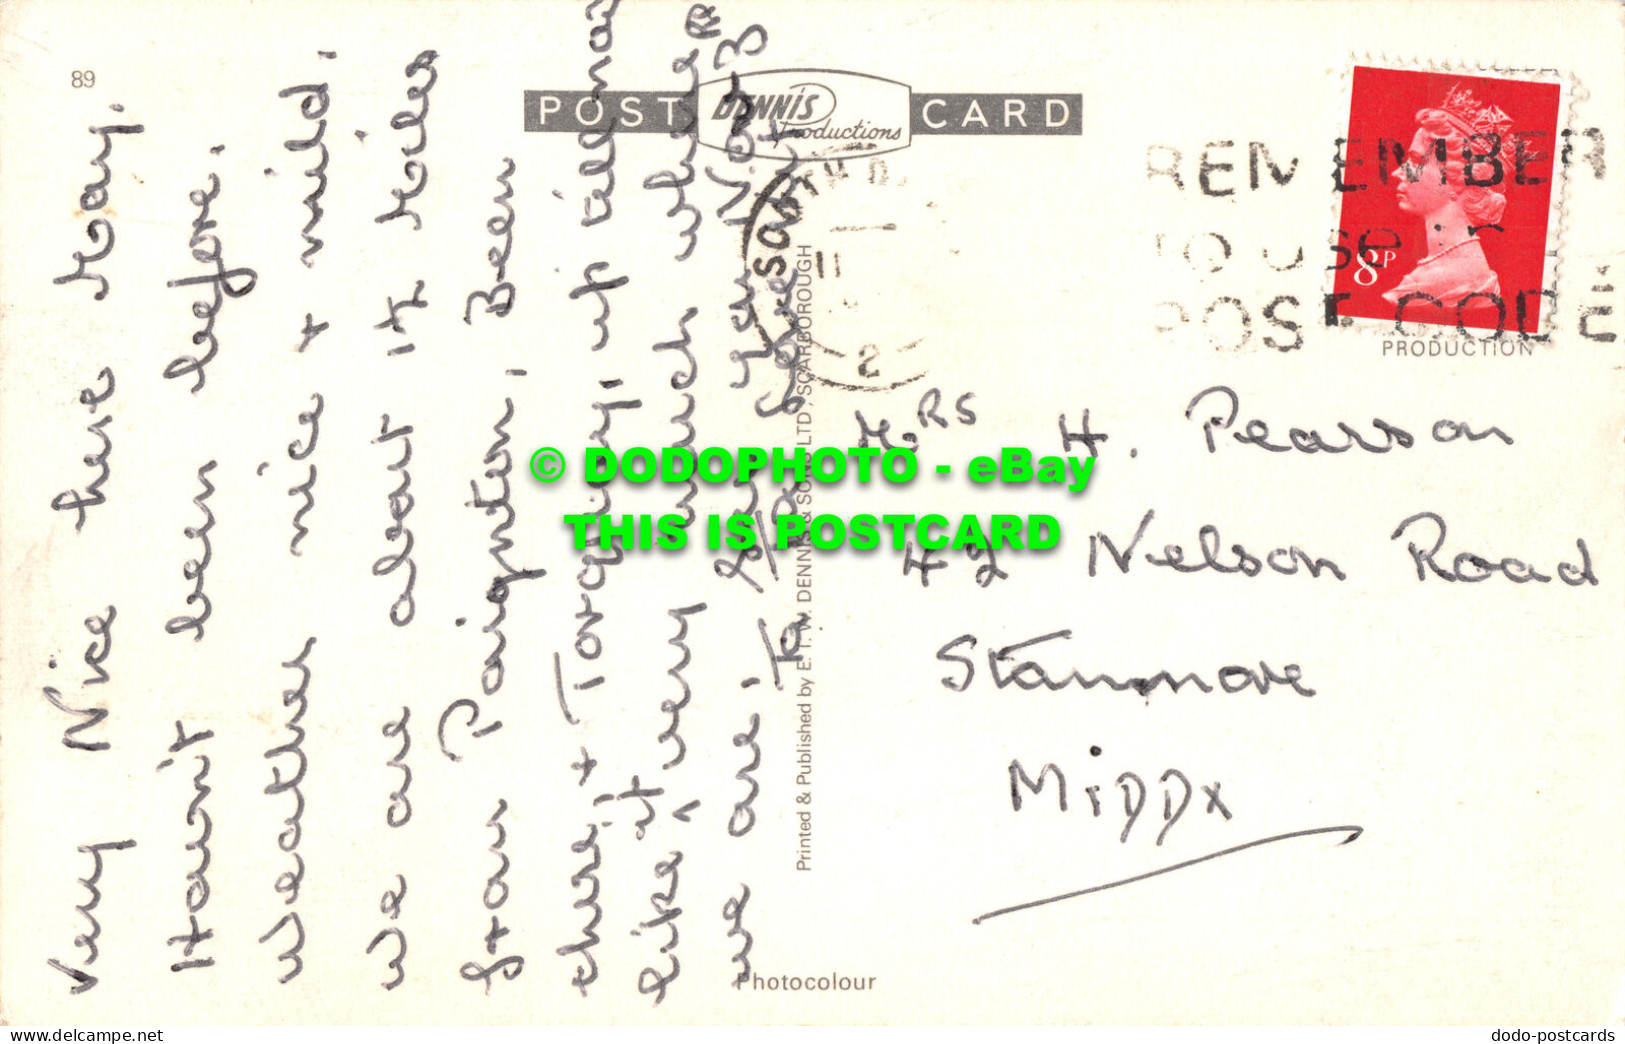 89
POST DENNIS Productions CARD
REMEMBER
TO USE
POST CODE
8P
PRODUCTION
11
2
Very Nice here Mary.
Havn't been before.
Weather nice + mild.
We are about 1½ Miles
from Paignton, Been
there, + Torquay, up till
like it very much where
we are,
Love
Mrs H. Pearson
42 Nelson Road
Stanmore
MIDDX
Printed & Published by E. T. W. DENNIS & SONS LTD, SCARBOROUGH
Photocolour
© DODOPHOTO - eBay
THIS IS POSTCARD
www.delcampe.net
dodo-postcards